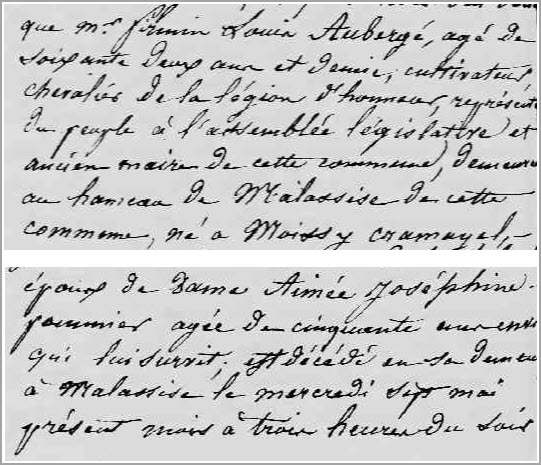 que mr. firmin Louis Aubergé, agé de
soixante deux ans et demie, cultivateur,
chevalier de la légion d'honneur, représent
du peuple à l'assemblée législative et
ancien maire de cette commune, demeura
au hameau de Malassise de cette
commune, né a Moissy cramayel,-
époux de Dame Aimée Joséphine
pommier agée de cinquante ans envi
qui lui survit, est décédé en sa demeu
à Malassise le mercredi sept mai
présent mois à trois heures du soir